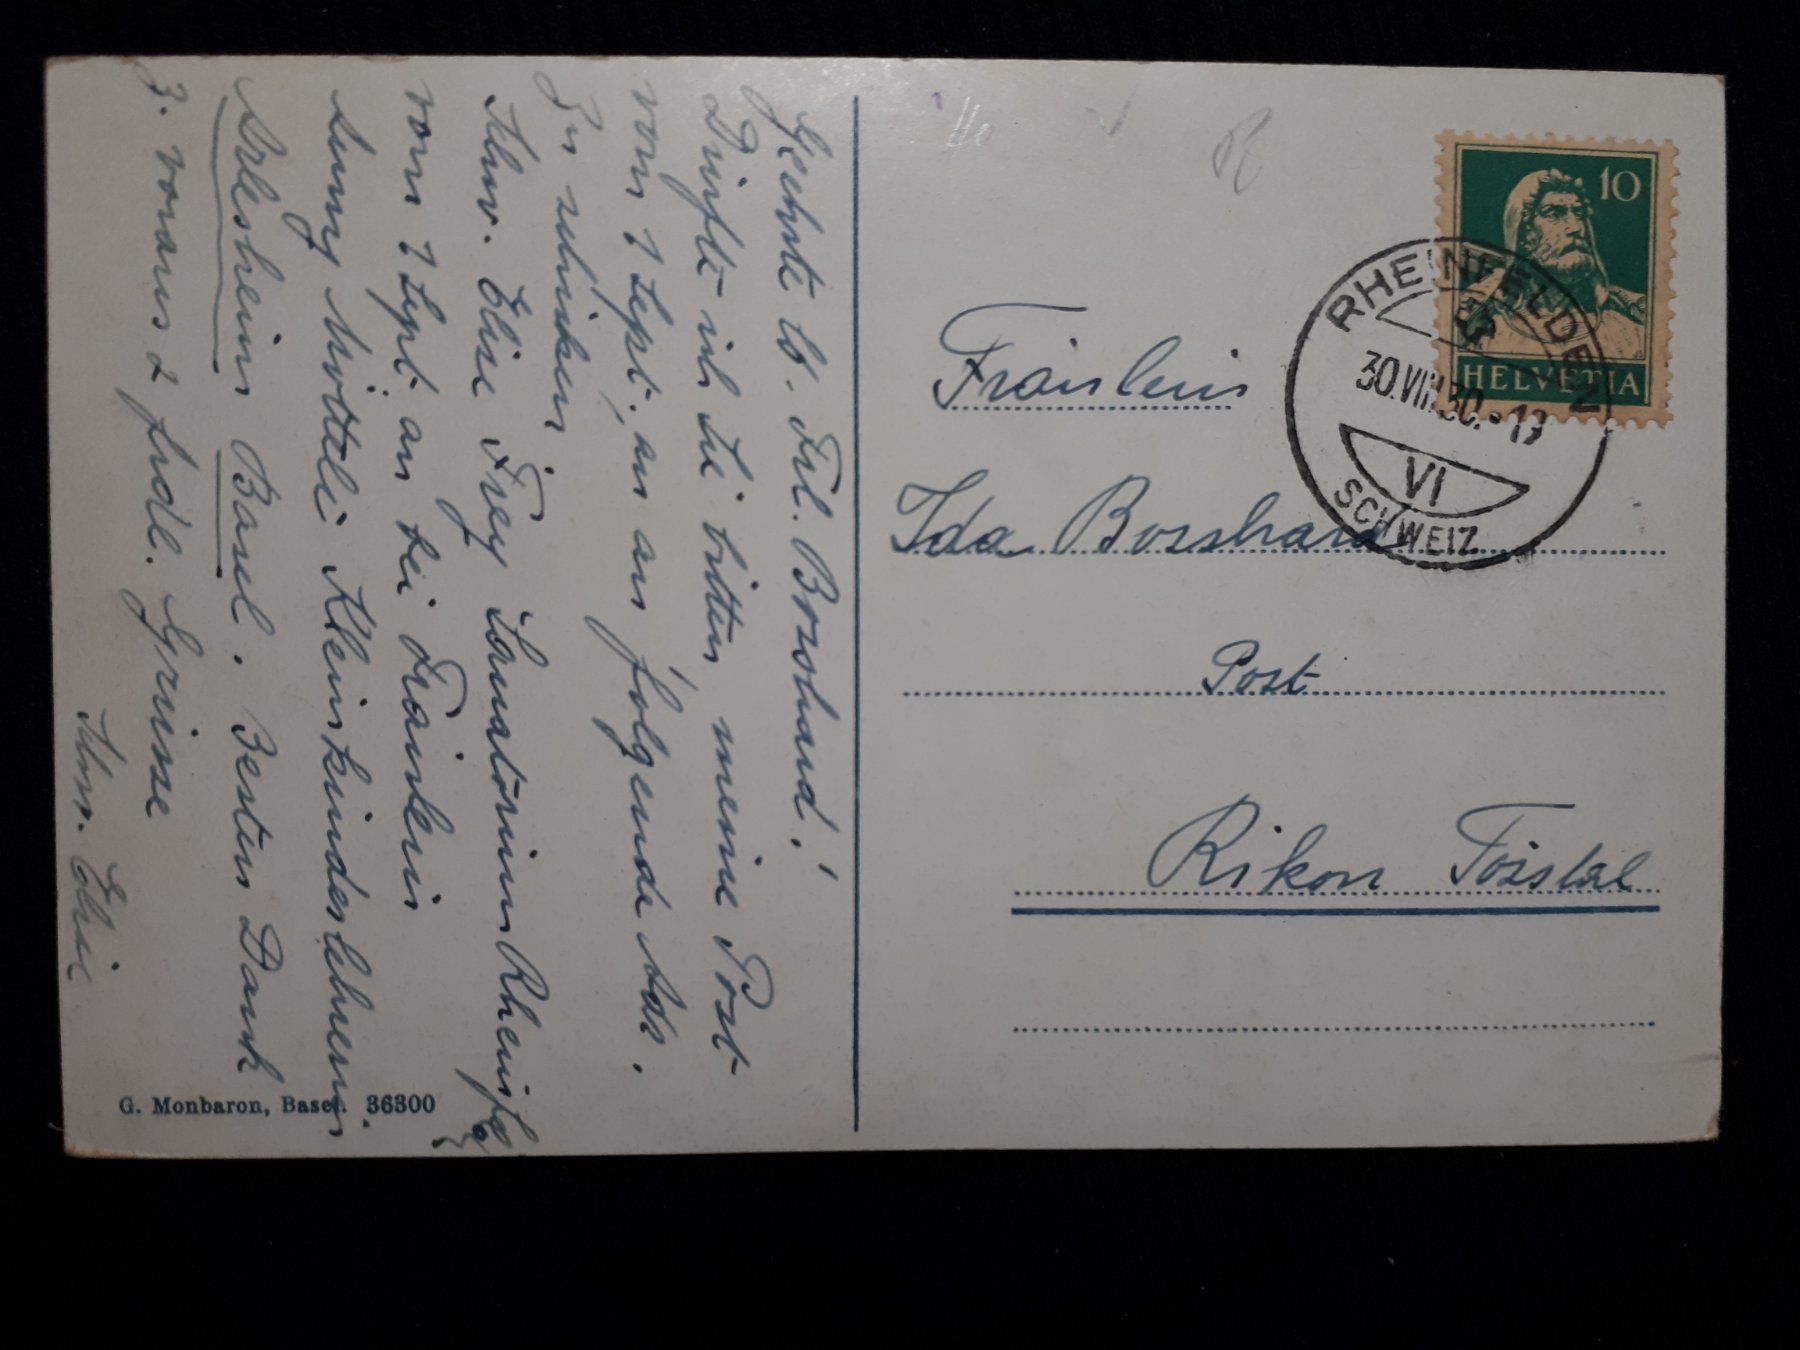 Geehrte lb. Frl. Bosshard!
Dürfte ich Sie bitten meine Post
vom 1 Sept. an an folgende Adr.
zu schicken
Schw. Elise Frey Sanatorium Rheinfel
vom 7 Sept. an bei Fräulein
Sunny Möttli Kleinkinderlehrerin
Arlesheim Basel. Besten Dank
z. voraus & frdl. Grüsse
Schw. Elise
G. Monbaron, Basel. 36300
10
HELVETIA
RHEINFELDEN
30.VIII.30.-19
VI
SCHWEIZ
Fräulein
Ida Bosshard
Post
Rikon Tösstal